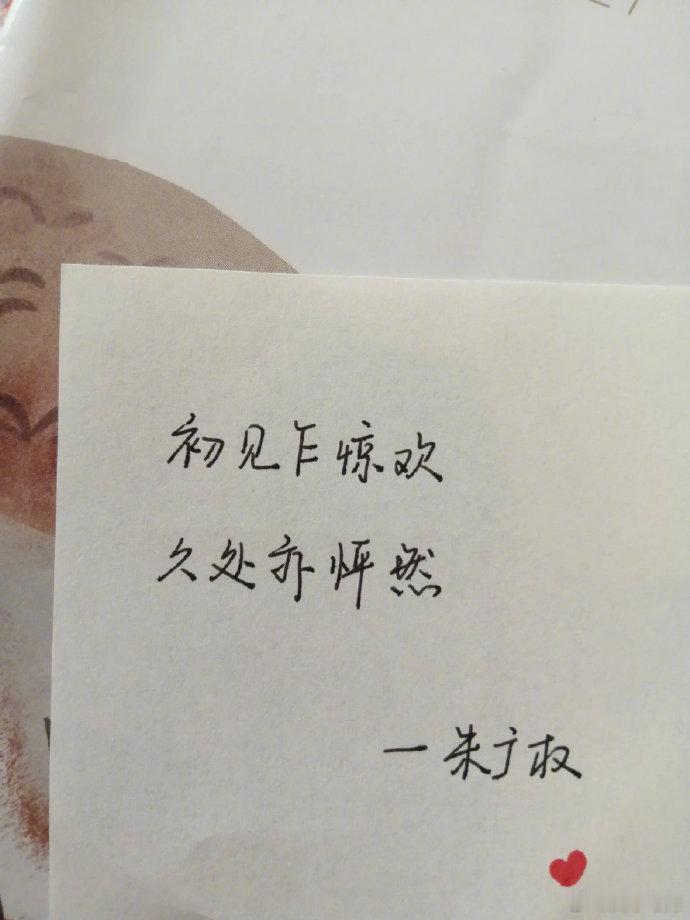 初见乍惊欢
久处亦怦然
一朱广权